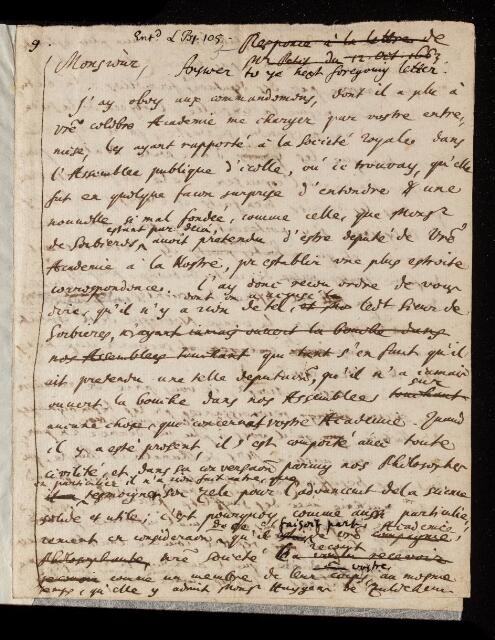 9. Ent.d L.Bk. 105.
Response à la lettre de
Mr Petit du 12 Oct. 1663
Monsieur, Answer to ye next foregoing letter.
j'ay obey aux commandemens, dont il a plu à
vre celebre Academie me charger par vostre entre,
mise, les ayant rapporté à la Societé royale dans
l'Assemblee publique d'icelle, où ie trouvay, qu'elle
fut en quelque facon surprise d'entendre d'une
nouvelle si mal fondée, comme celle, que Monsr
de Sorbiere, estant par deca, avoit pretendu d'estre deputé de Vre
Academie à la Nostre, pr establir une plus estroite
correspondance. l'ay donc receu ordre de vous
dire, qu'il n'y a rien de tel, dont ledt Sieur de
Sorbiere, n'ayant iamais ouvert la bouche dans
nos Assemblees touchant que tant s'en faut qu'il
ait pretendu une telle deputaon, qu'il n'a iamais
ouvert la bouche dans nos Assemblees sur touchant
aucune chose, que concernat vostre Academie. Quand
il y a esté present, il s'est comporté avec toute
civilité, et dans sa conversaon parmy nos Philosophes
en particulier il n'a rien fait
tesmoigner son zele pour l'advancemt de la science
solide et utile; c'est pourquoy, comme aussi particulie,
rement en consideraon, qu'il faisoit part de vre Academie,
Philosophante, nre Societé l'a receut recevoir
comme un membre de leur corps, au mesme
temps, qu'elle y admit Monsr Huygens de Zulichem